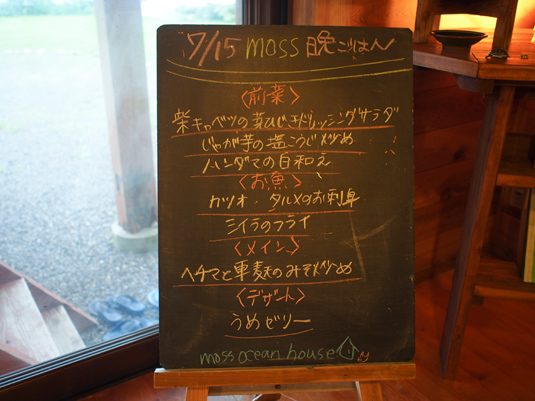 7/15 moss 晩ごはん
〈前菜〉
紫キャベツの葉ひじきドレッシングサラダ
じゃが芋の塩こうじ炒め
ハンダマの白和え
〈お魚〉
カツオ・タルメのお刺身
シイラのフライ
〈メイン〉
ヘチマと車麩のみそ炒め
〈デザート〉
うめゼリー
moss ocean house